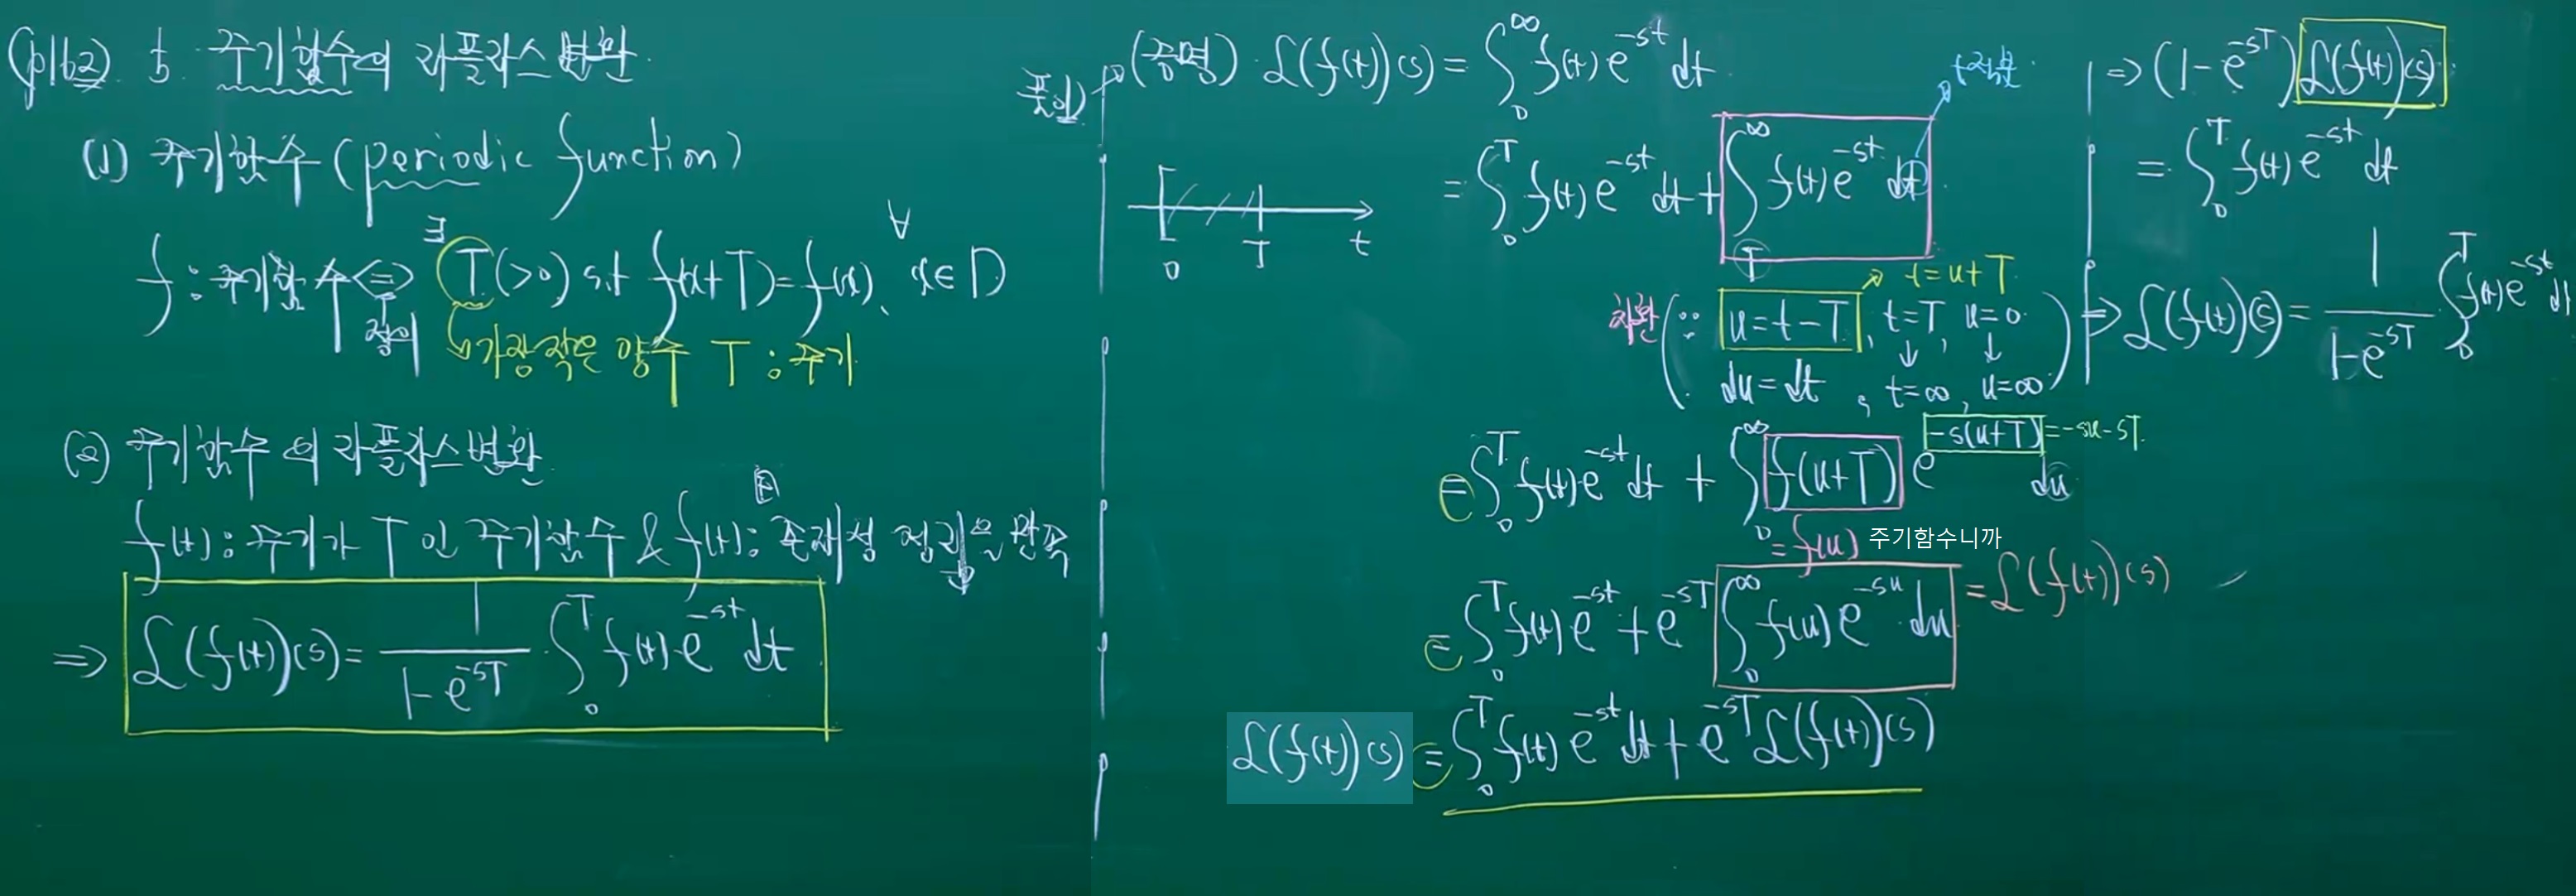 (p162) 5. 주기함수의 라플라스 변환
(1) 주기함수 (periodic function)
f : 주기함수 ⇔ ∃ T(>0) s.t f(x+T)=f(x), ∀ x∈D
정의
가장 작은 양수 T : 주기
(2) 주기함수의 라플라스변환
f(t) : 주기가 T인 주기함수 & f(t) : 존재성 정리를 만족
⇒ ℒ(f(t))(s) = 1/(1-e^{-sT}) · ∫₀^T f(t) e^{-st} dt
풀이)
(증명) · ℒ(f(t))(s) = ∫₀^∞ f(t) e^{-st} dt
0 T t
= ∫₀^T f(t) e^{-st} dt + ∫_T^∞ f(t) e^{-st} dt
t=u+T
치환 (∵ u=t-T, t=T, u=0
↓ ↓
du=dt, t=∞, u=∞)
= ∫₀^T f(t) e^{-st} dt + ∫₀^∞ f(u+T) e^{-s(u+T)} du
=-su-sT
=f(u) 주기함수니까
= ∫₀^T f(t) e^{-st} + e^{-sT} ∫₀^∞ f(u) e^{-su} du = ℒ(f(t))(s)
ℒ(f(t))(s) = ∫₀^T f(t) e^{-st} dt + e^{-sT} ℒ(f(t))(s)
⇒ (1-e^{-sT}) ℒ(f(t))(s)
= ∫₀^T f(t) e^{-st} dt
⇒ ℒ(f(t))(s) = 1/(1-e^{-sT}) ∫₀^T f(t) e^{-st} dt